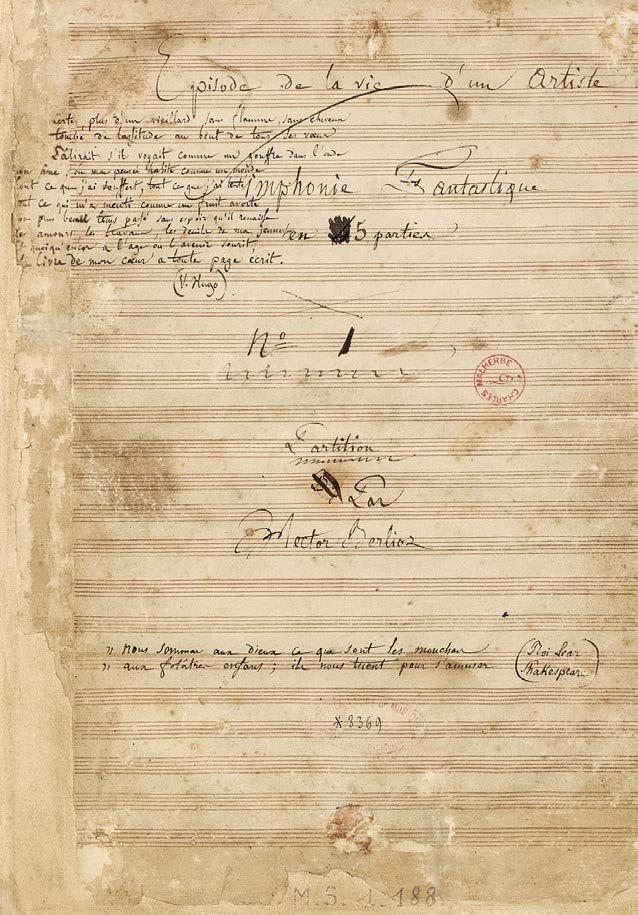 Episode de la vie d'un Artiste
certe, plus d'un vieillard sans flamme, sans cheveux
tombé de lassitude au bout de tous ses vœux
Pâlirait s'il voyait comme un gouffre dans l'onde
mon âme, où ma pensée habite comme un monde
tout ce que j'ai souffert, tout ce que j'ai tenté
tout ce qui m'a menti comme un fruit avorté
mon plus beau tems passé sans espoir qu'il renaisse
les amours, les travaux, les deuils de ma jeunesse
et quoiqu'encor à l'age où l'avenir sourit,
le livre de mon cœur à toute page écrit.
(V. Hugo)
Symphonie Fantastique
en 5 parties
Nº 1
CHARLES MALHERBE
Partition
Par
Hector Berlioz
" nous sommes aux dieux ce que sont les mouches
" aux folâtres enfans; ils nous tuent pour s'amuser
(Roi Lear
Shakespeare)
*8369
M.S. 1.188